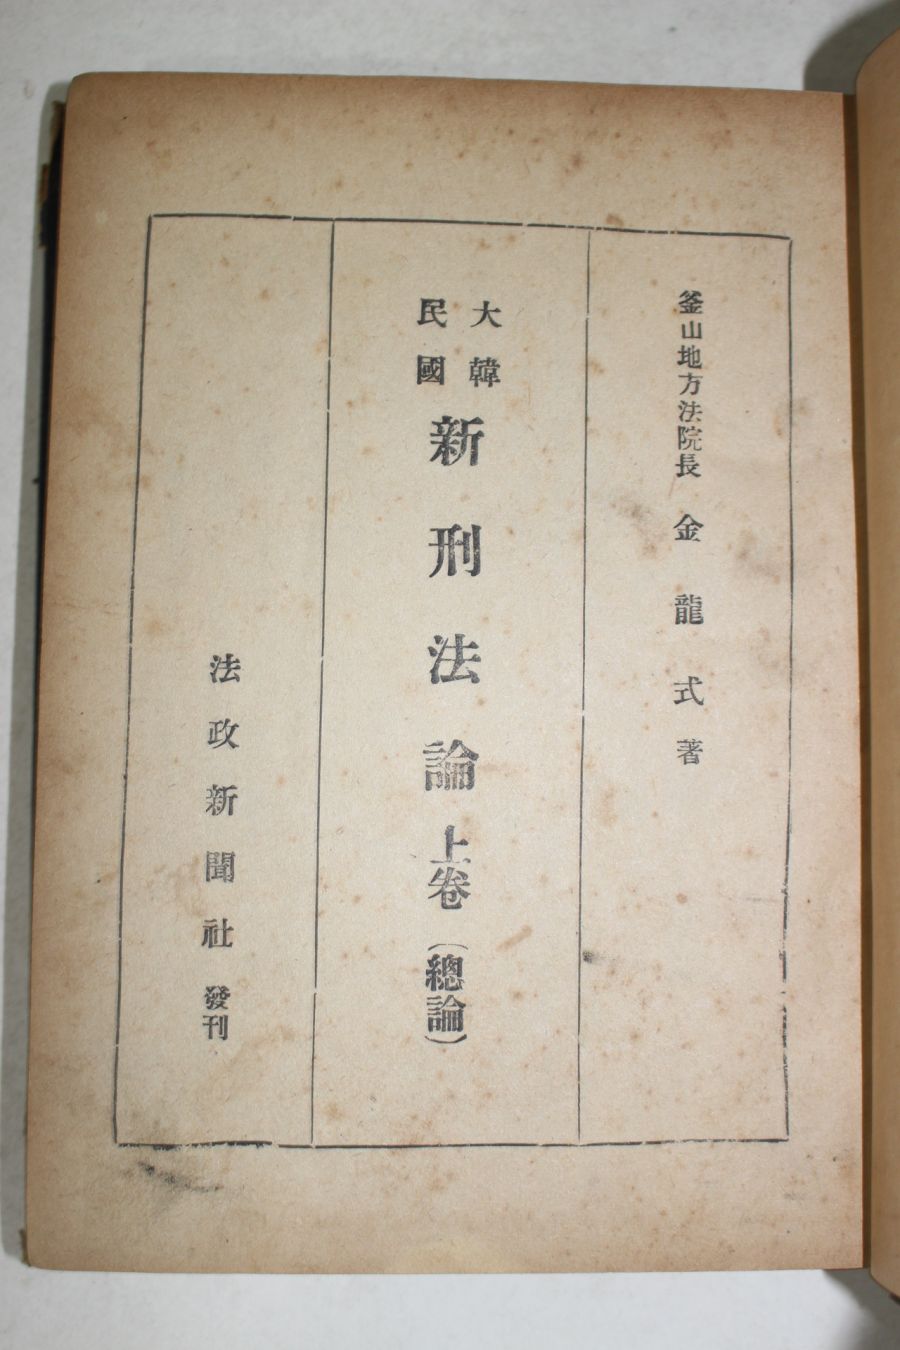 釜山地方法院長 金龍式 著
大韓民國 新刑法論 上卷 (總論)
法政新聞社 發刊